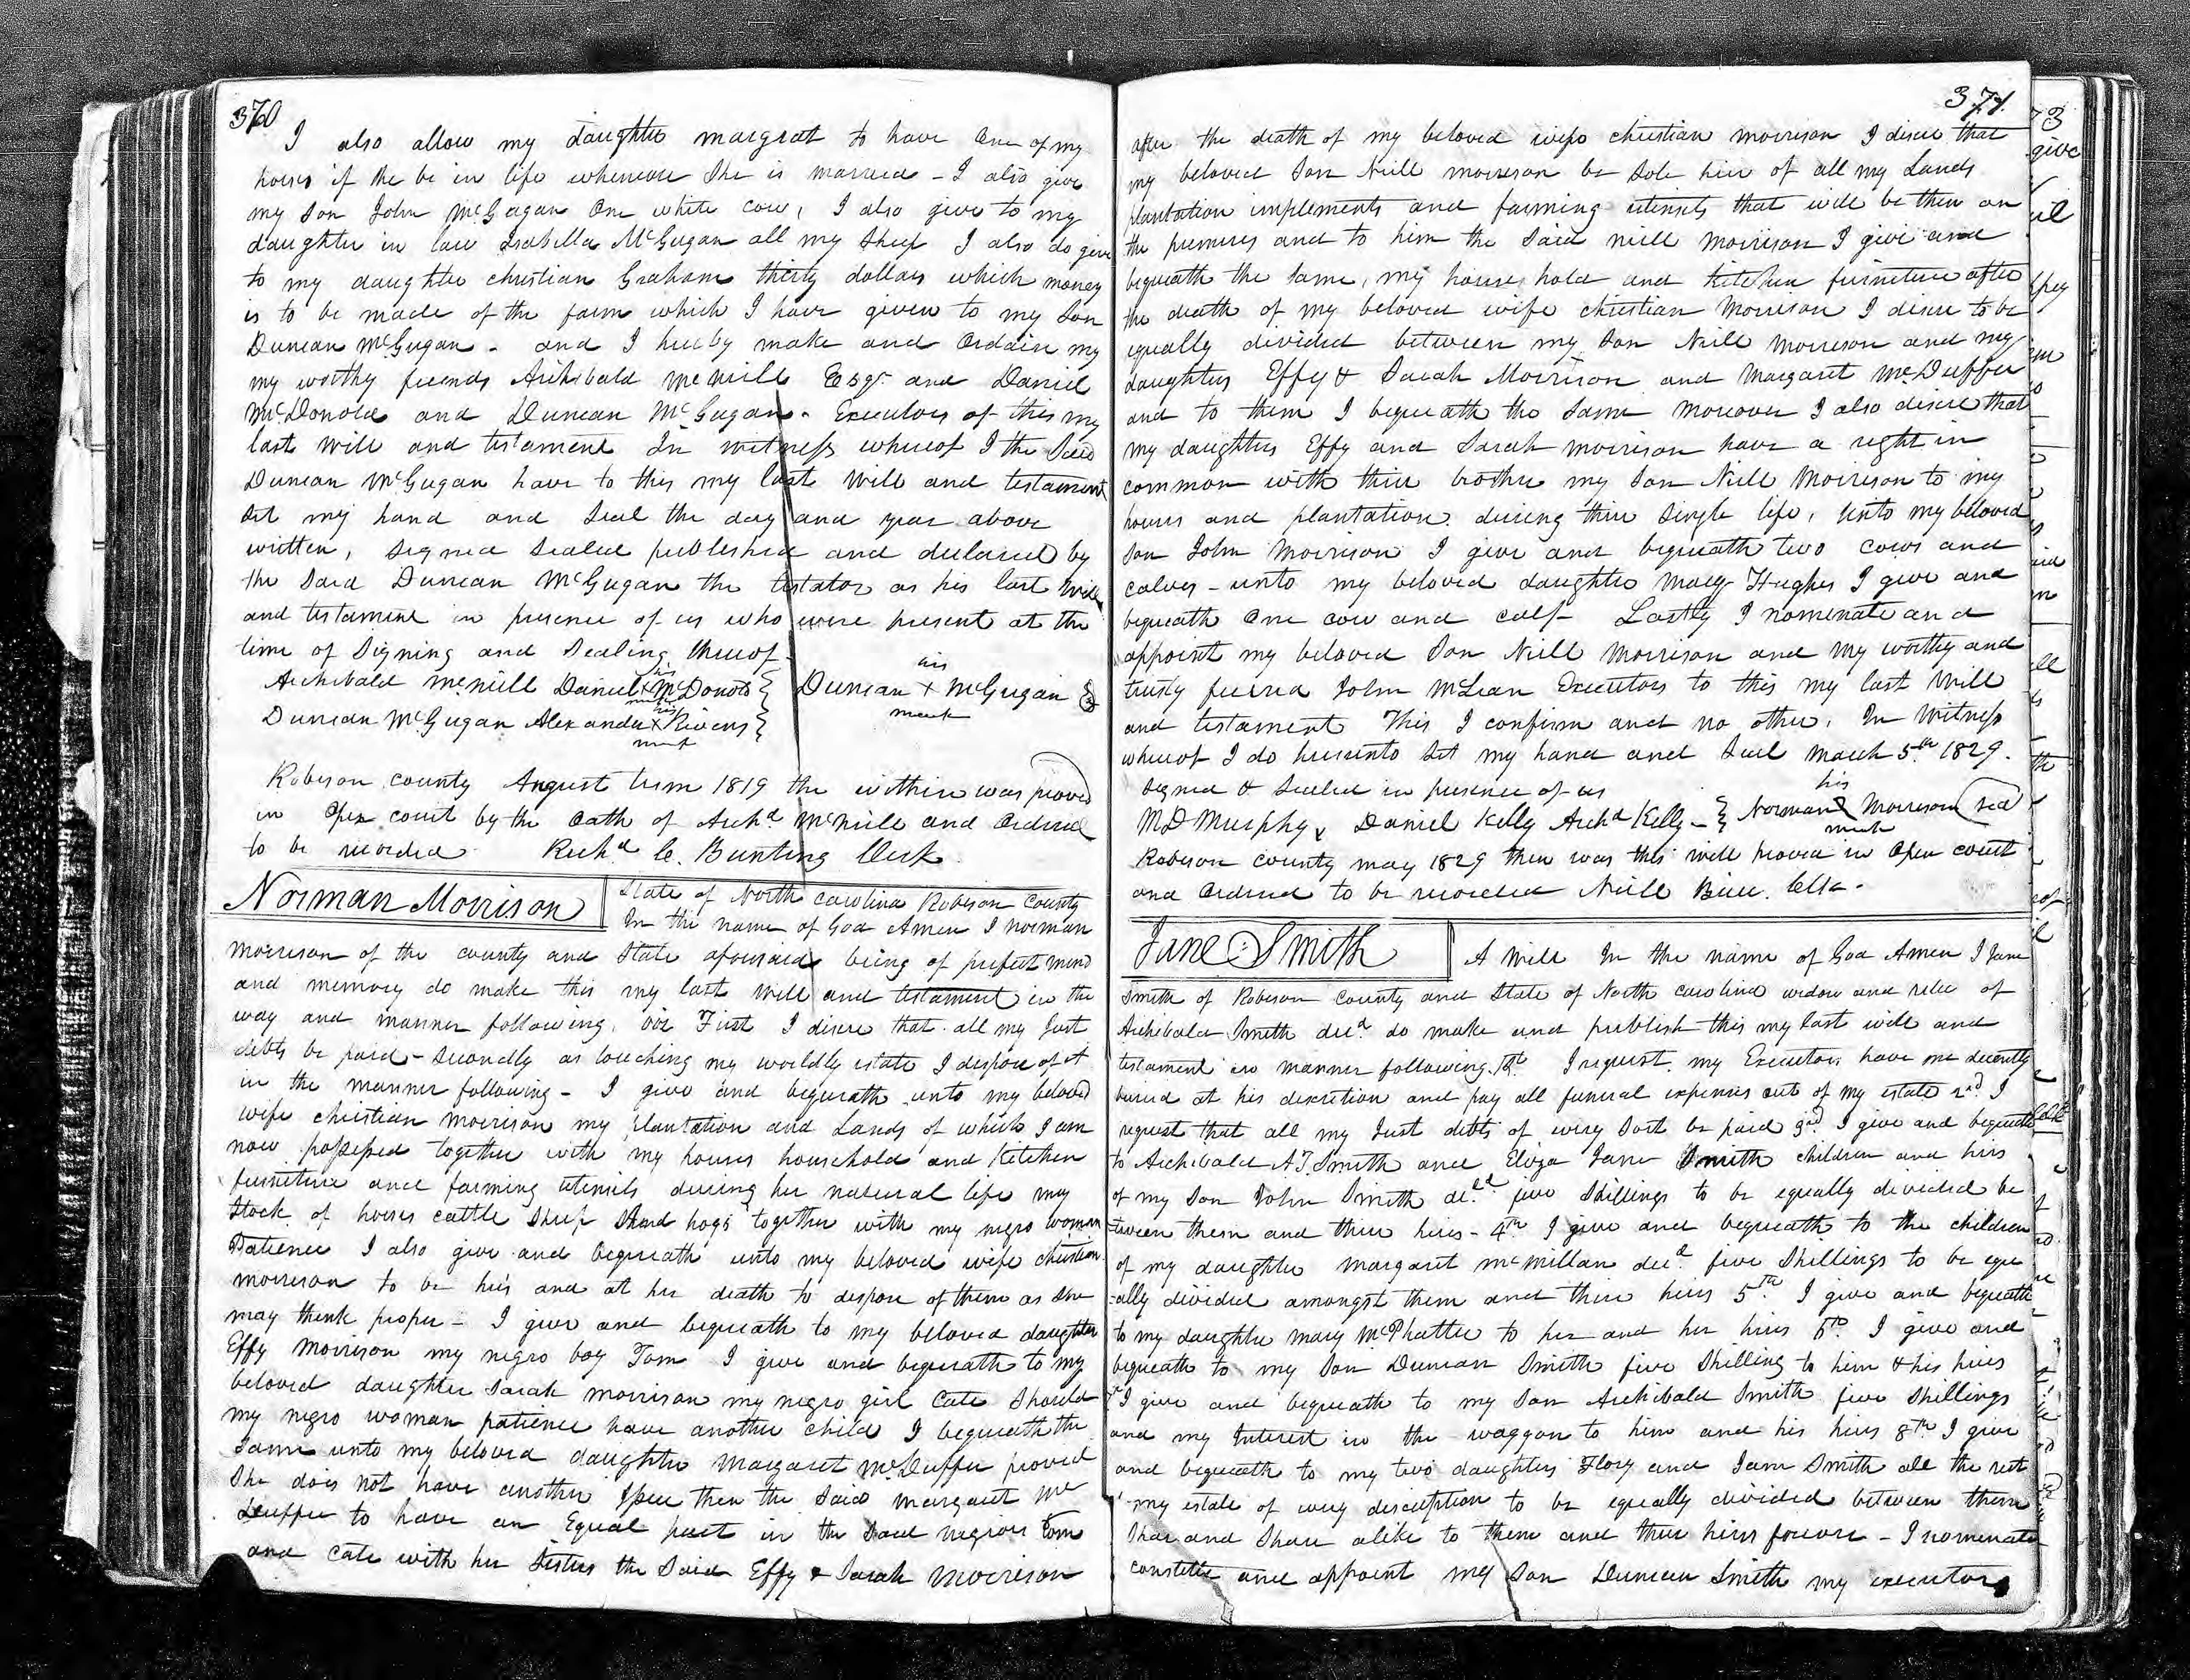 370
I also allow my daughter margrat to have One of my
horses if she be in life whenever She is married - I also give
my Son John McGugan One white cow, I also give to my
daughter in law Isabella McGugan all my Sheep I also do give
to my daughter christian Graham thirty dollars which money
is to be made of the farm which I have given to my Son
Duncan McGugan - and I hereby make and Ordain my
my worthy friends Archibald McNeill Esqr. and Daniel
McDonold and Duncan McGugan. Executors of this my
last Will and testament In witness whereof I the Said
Duncan McGugan have to this my last Will and testament
Set my hand and Seal the day and year above
written, Signed Sealed published and declared by
the Said Duncan McGugan the testator as his last Will
and testament in presence of us who were present at the
time of Signing and Sealing thereof.
Archibald McNeill Daniel his x mark McDonold } Duncan his + mark McGugan
Duncan McGugan Alexander his x mark Rivens }
Robeson county August term 1819 the within was proved
in Open court by the Oath of Archd McNeill and Ordered
to be recorded Richd C. Bunting Clerk
Norman Morrison
State of North carolina Robeson County
In the name of God Amen I norman
morrison of the county and State aforesaid being of perfect mind
and memory do make this my last Will and testament in the
way and manner following. viz First I disire that all my Just
debts be paid - Secondly as touching my worldly estate I dispose of it
in the manner following - I give and bequeath unto my beloved
wife christian morrison my plantation and Lands of which I am
now possessed together with my houses household and Kitchen
furniture and farming utensils during her natural life my
Stock of horses cattle Sheep and hogs together with my negro woman
Patience I also give and bequeath unto my beloved wife christian
morrison to be hers and at her death to dispose of them as She
may think proper - I give and bequeath to my beloved daughter
Effy Morrison my negro boy Tom I give and bequeath to my
beloved daughter Sarah morrison my negro girl Cate Should
my negro woman patience have another child I bequeath the
Same unto my beloved daughter Margaret McDuffee proved
She does not have another Issue then the Said Margaret Mc
Duffee to have an Equal part in the Said negroes Tom
and Cate with her Sisters the Said Effy & Sarah Morrison
371.
after the death of my beloved wife christian morrison I disire that
my beloved Son Neill morrison be Sole heir of all my Lands
plantation implements and farming utensils that will be then on
the premises and to him the Said neill Morrison I give and
bequeath the Same, my house hold and Kitchen furniture after
the death of my beloved wife christian Morrison I disire to be
equally divided between my Son Neill Morrison and my
daughters Effy & Sarah Morrison and Margaret McDuffee
and to them I bequeath the Same Moreover I also disire that
my daughters Effy and Sarah morrison have a right in
common with their brother my Son Neill Morrison to my
houses and plantation during their Single life, Unto my beloved
Son John Morrison I give and bequeath two cows and
calves - unto my beloved daughter Mary Hughes I give and
bequeath One cow and calf Lastly I nomenate and
appoint my beloved Son Neill Morrison and my worthy and
trusty friend John McLean Executors to this my last Will
and testament This I confirm and no other. In Witness
whereof I do hereunto Set my hand and Seal March 5th 1829.
Signed & Sealed in presence of us
MD Murphy, Daniel Kelly Archd Kelly - } Norman his mark Morrison Seal
Robeson county may 1829 then was this will proved in Open court
and Ordered to be recorded Neill Buie. Clk.
Jane Smith
A Will In the name of God Amen I Jane
Smith of Robeson County and State of North carolina widow and relec of
Archibald Smith decd. do make and publish this my last will and
testament in manner following. 1st I request my Executor have me decently
buried at his discretion and pay all funeral expenses out of my estate 2nd I
request that all my Just debts of every Sort be paid 3rd I give and bequeath
to Archibald A.T. Smith and Eliza Jane Smith children and heirs
of my Son John Smith decd. five Shillings to be equally divided be
tween them and their heirs - 4th I give and bequeath to the children
of my daughter Margaret McMillan decd five Shillings to be equ
-ally divided amongst them and their heirs 5th I give and bequeath
to my daughter Mary McPhatter to her and her heirs 6th I give and
bequeath to my Son Duncan Smith five Shilling to him & his heirs
I give and bequeath to my Son Archibald Smith five Shillings
and my Interest in the waggon to him and his heirs 8th I give
and bequeath to my two daughters Flory and Jane Smith all the rest
my estate of every description to be equally divided between them
Shar and Share alike to them and their heirs forever - I nomenate
constitute and appoint my Son Duncan Smith my executor